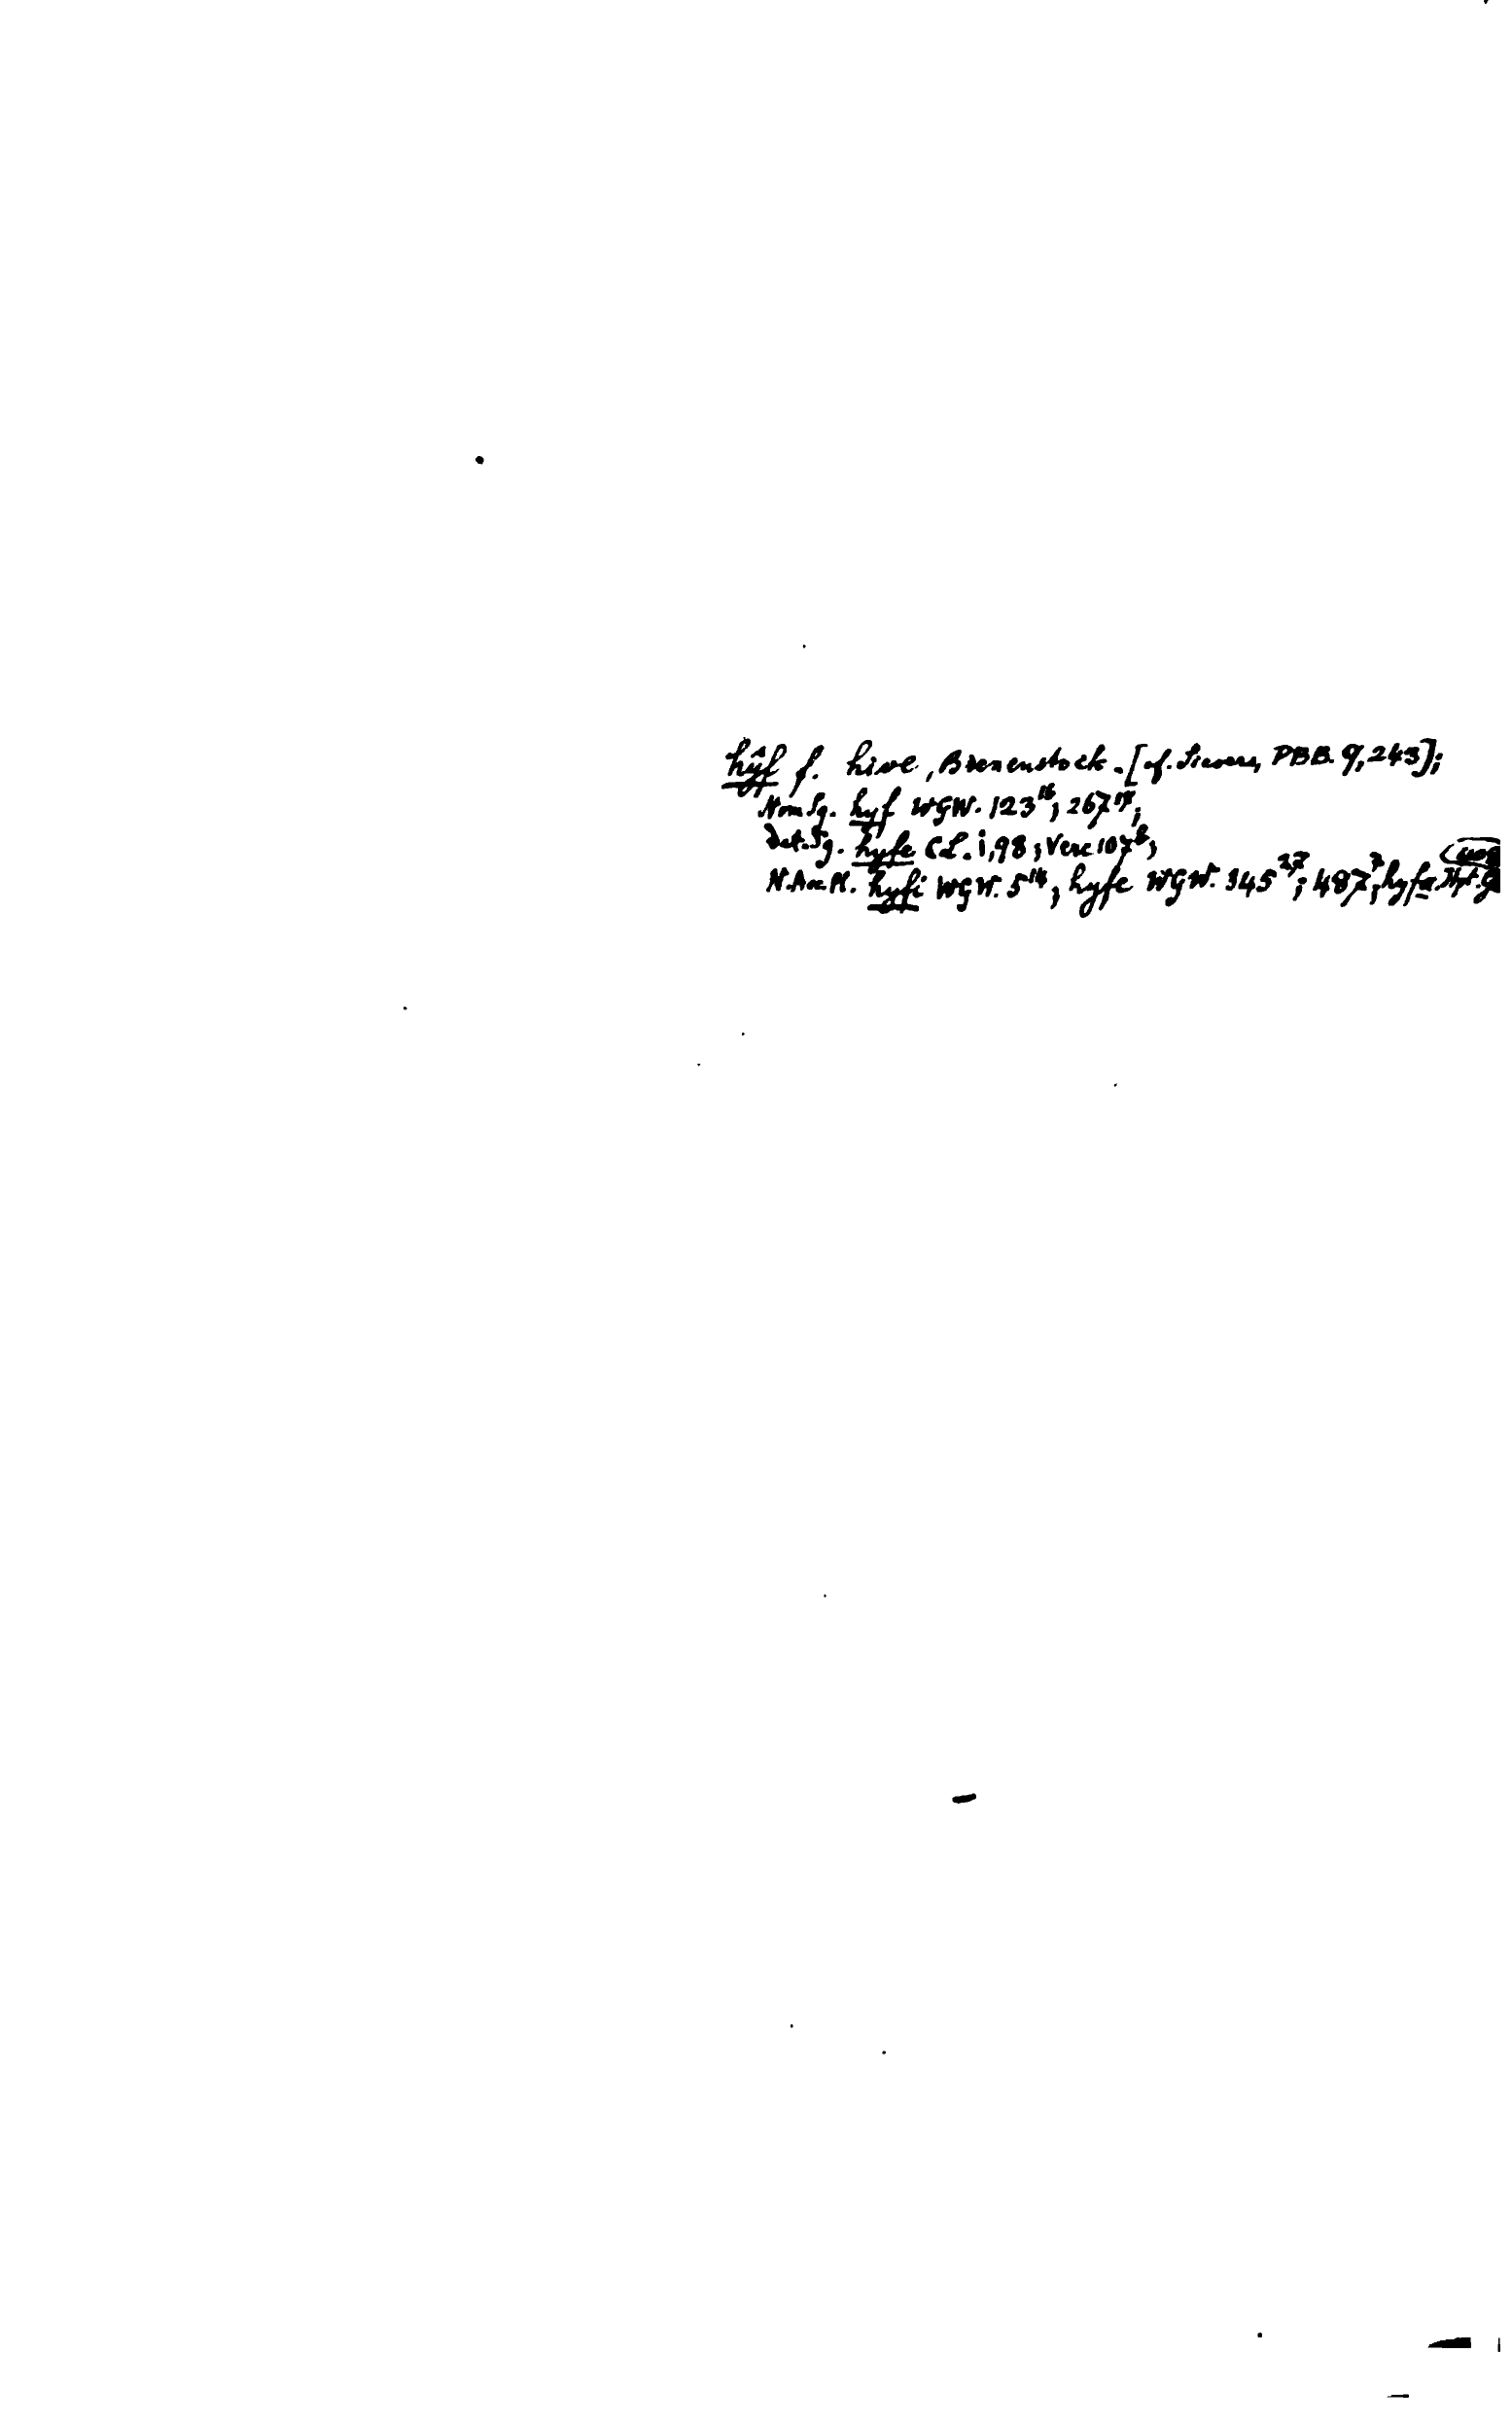 hŷf f. hive, Bienenstock. [cf. Sievers, PBB. 9, 243];
Nom Sg. hyf WGW. 123¹⁶; 267¹⁷;
Dat. Sg. hyfe Cd. i, 98; Verc 107⁸;
N. Acc Pl. hyfi WGW. 5¹⁴, hyfe WGW. 345²⁷; 487³; hyfa. Hpt. G